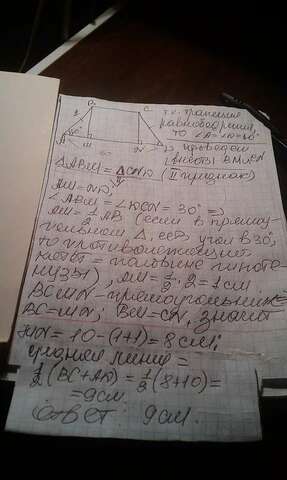 B
C
2
60°
A
M
N
D
т.к. трапеция
равнобедрен.
то ∠A=∠D=60°
проведем
высоты BM и CN
△ABM = △CND
(II признак)
AM=ND
∠ABM = ∠DCN = 30° ⇒
AM = 1/2 AB (если в прямоу-
гольном △, есть угол в 30°,
то противолежащий
катет = половине гипоте-
нузы), AM = 1/2 · 2 = 1 см.
BCNM - прямоугольник ⇒
BC=MN; BM=CN, значит
MN = 10-(1+1) = 8 см;
средняя линия =
1/2 (BC+AD) = 1/2 (8+10) =
=9см.
Ответ: 9см.